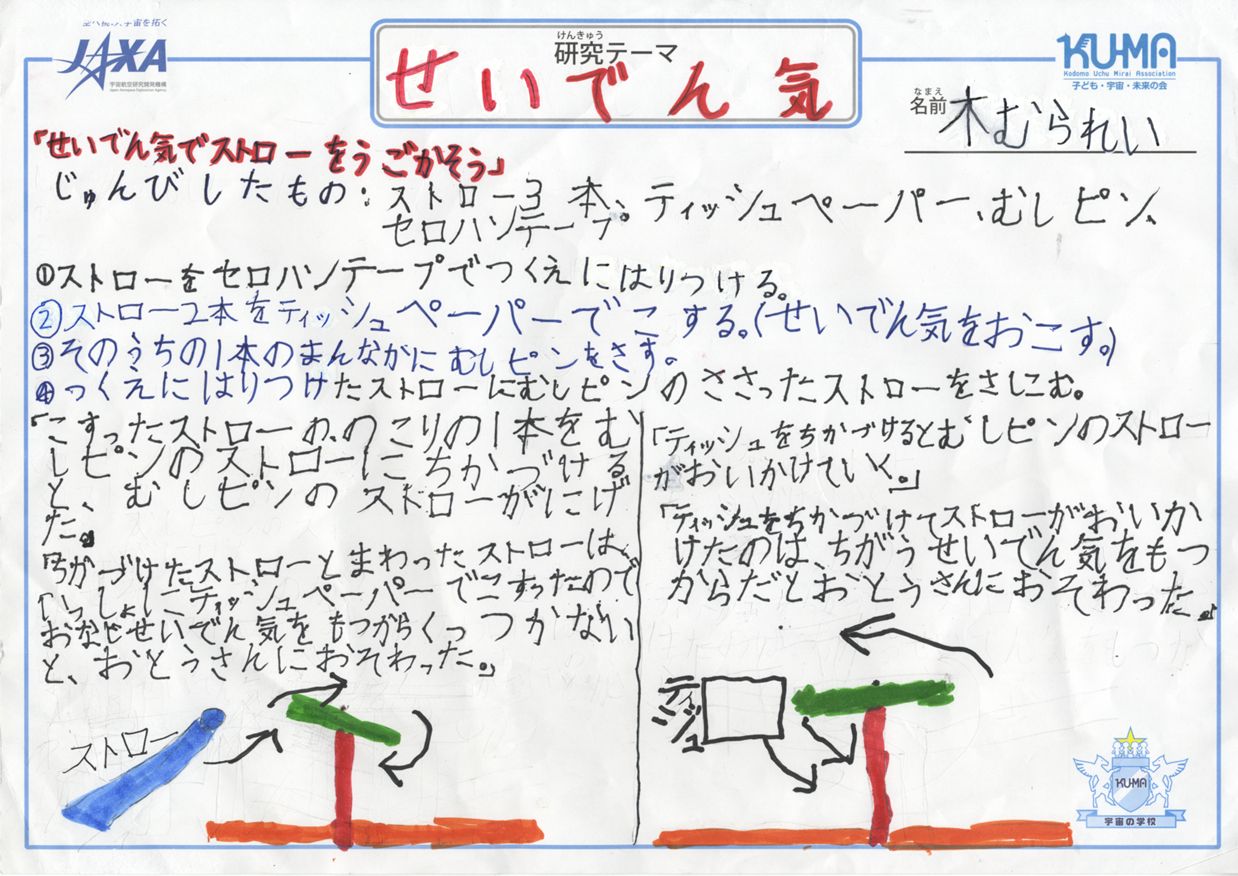 空へ挑み、宇宙を拓く
JAXA
宇宙航空研究開発機構
Japan Aerospace Exploration Agency
けんきゅう
研究テーマ
せいでん気
KU-MA
Kodomo Uchu Mirai Association
子ども・宇宙・未来の会
なまえ
名前 木むられい
「せいでん気でストローをうごかそう」
じゅんびしたもの：ストロー3本、ティッシュペーパー、むしピン、
セロハンテープ。
①ストローをセロハンテープでつくえにはりつける。
②ストロー2本をティッシュペーパーでこする。(せいでん気をおこす。)
③そのうちの1本のまんなかにむしピンをさす。
④つくえにはりつけたストローにむしピンのささったストローをさしこむ。
「こすったストローの、のこりの1本をむ
しピンのストローにちかづける
と、むしピンのストローがにげ
た。」
「ちかづけたストローとまわったストローは、
いっしょにティッシュペーパーでこすったので
おなじせいでん気をもつからくっつかない
と、おとうさんにおそわった。」
ストロー
「ティッシュをちかづけるとむしピンのストロー
がおいかけていく。」
「ティッシュをちかづけてストローがおいか
けたのは、ちがうせいでん気をもつ
からだとおとうさんにおそわった。」
ティッシュ
KU-MA
宇宙の学校